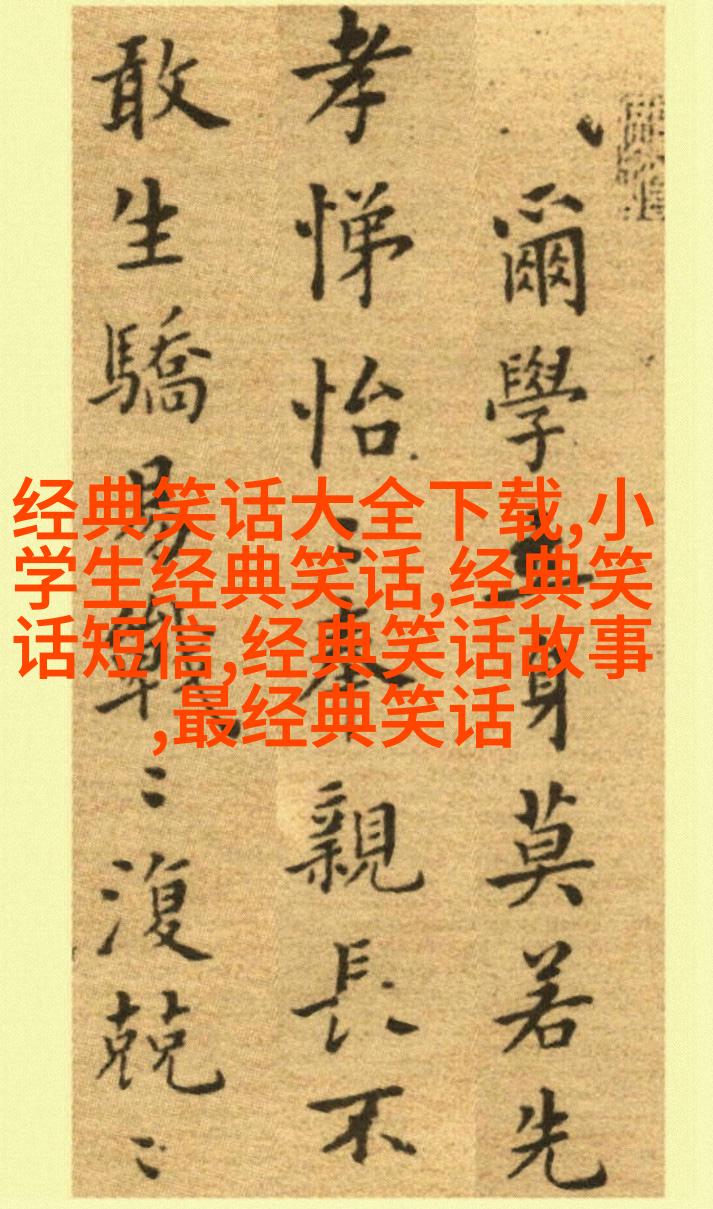 爾學立身莫若先
孝悌怡〻奉親長不
敢生驕易戰〻復兢〻
经典笑话大全下载,小
学生经典笑话,经典笑
话短信,经典笑话故事
,最经典笑话